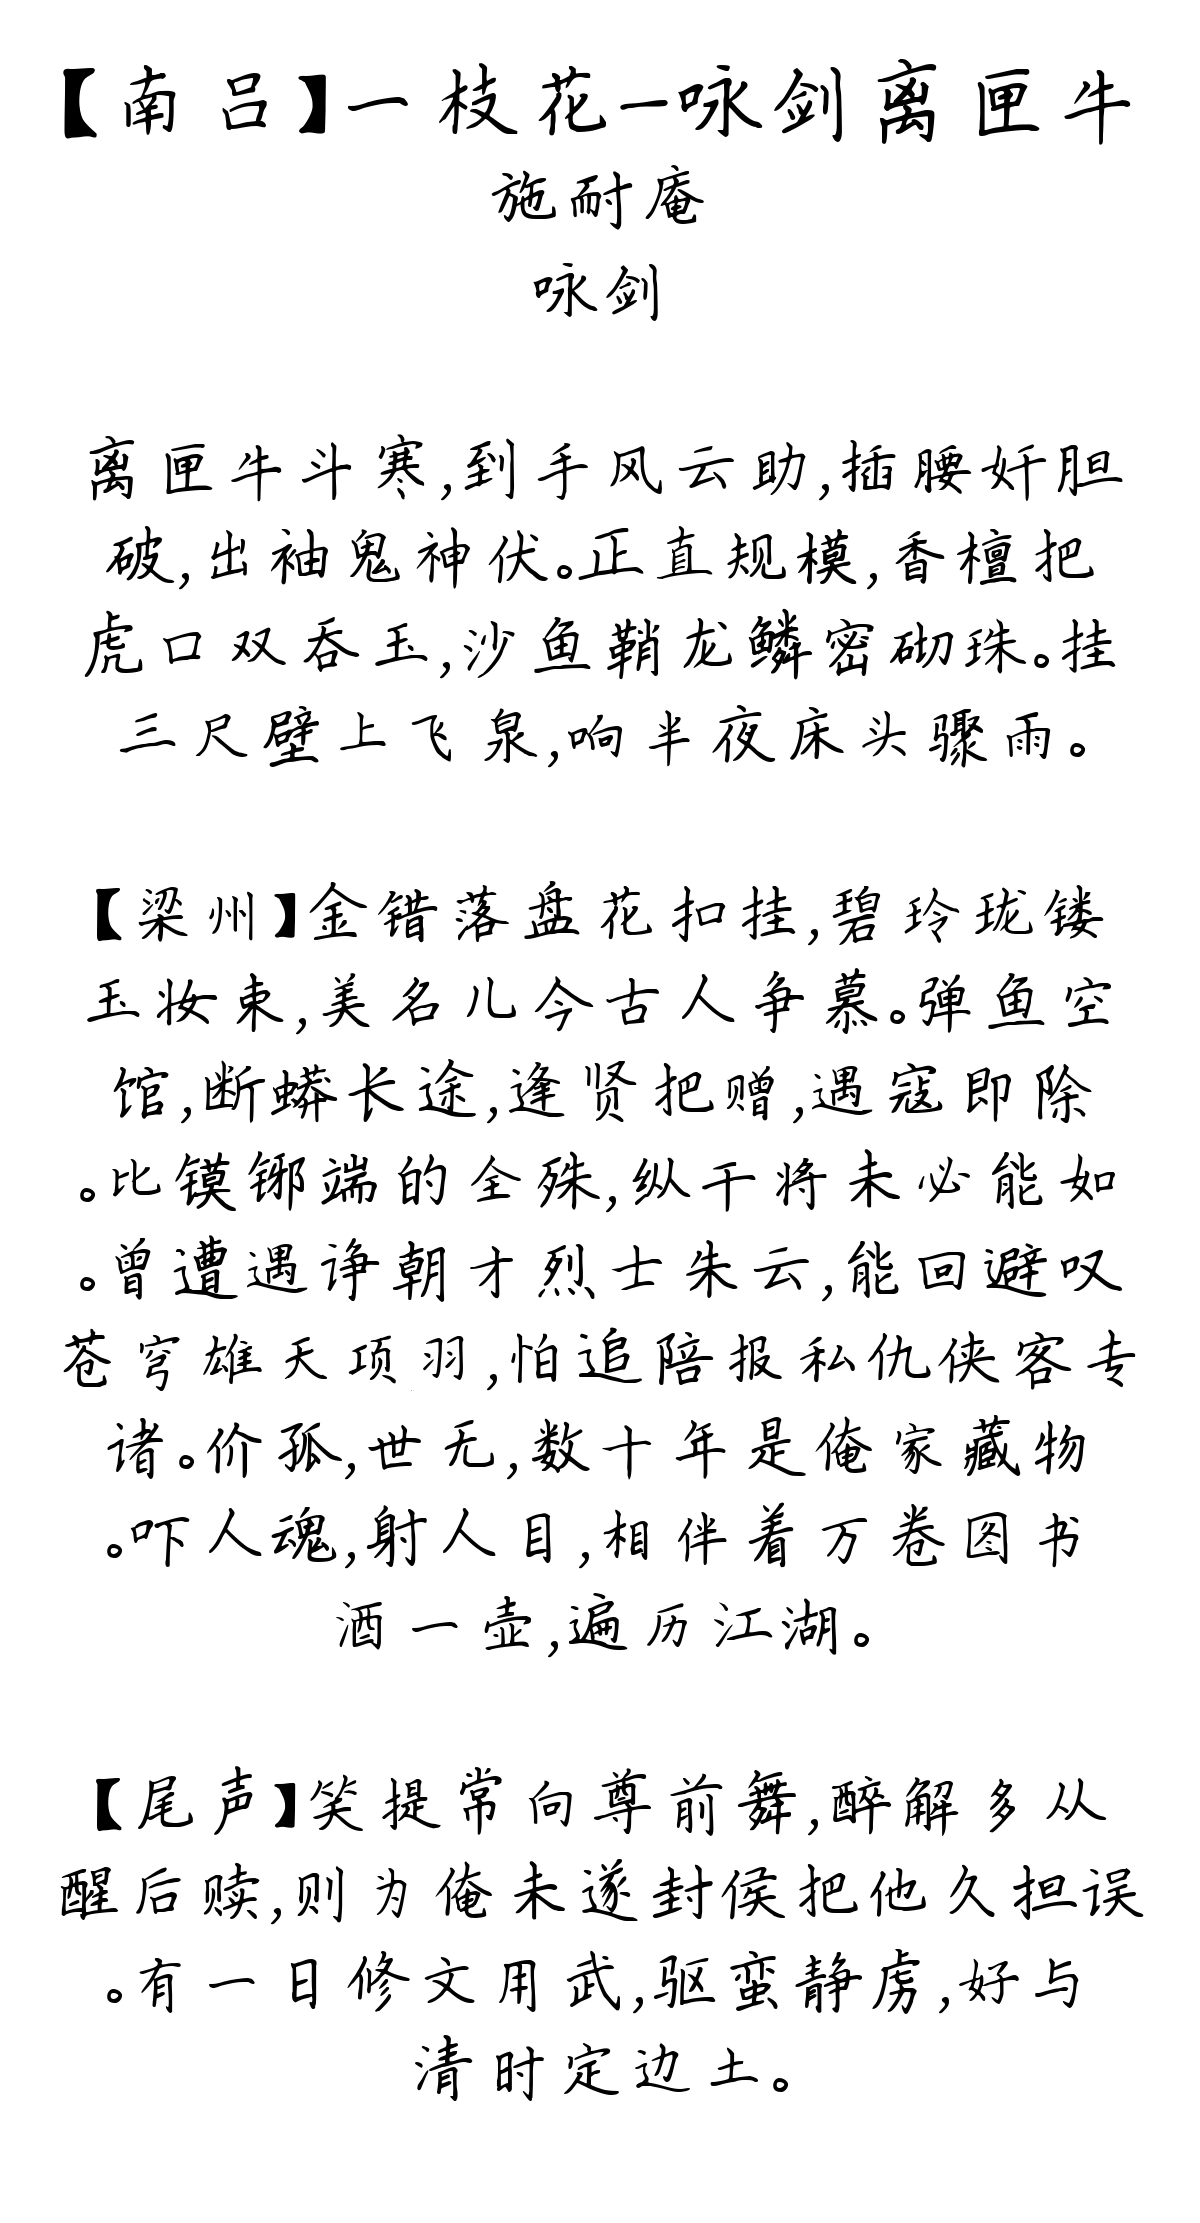 【南吕】一枝花-咏剑离匣牛
施耐庵
咏剑
离匣牛斗寒,到手风云助,插腰奸胆
破,出袖鬼神伏。正直规模,香檀把
虎口双吞玉,沙鱼鞘龙鳞密砌珠。挂
三尺壁上飞泉,响半夜床头骤雨。
【梁州】金错落盘花扣挂,碧玲珑镂
玉妆束,美名儿今古人争慕。弹鱼空
馆,断蟒长途,逢贤把赠,遇寇即除
。比镆铘端的全殊,纵干将未必能如
。曾遭遇诤朝才烈士朱云,能回避叹
苍穹雄夭项羽,怕追陪报私仇侠客专
诸。价孤,世无,数十年是俺家藏物
。吓人魂,射人目,相伴着万卷图书
酒一壶,遍历江湖。
【尾声】笑提常向尊前舞,醉解多从
醒后赎,则为俺未遂封侯把他久担误
。有一日修文用武,驱蛮静虏,好与
清时定边土。